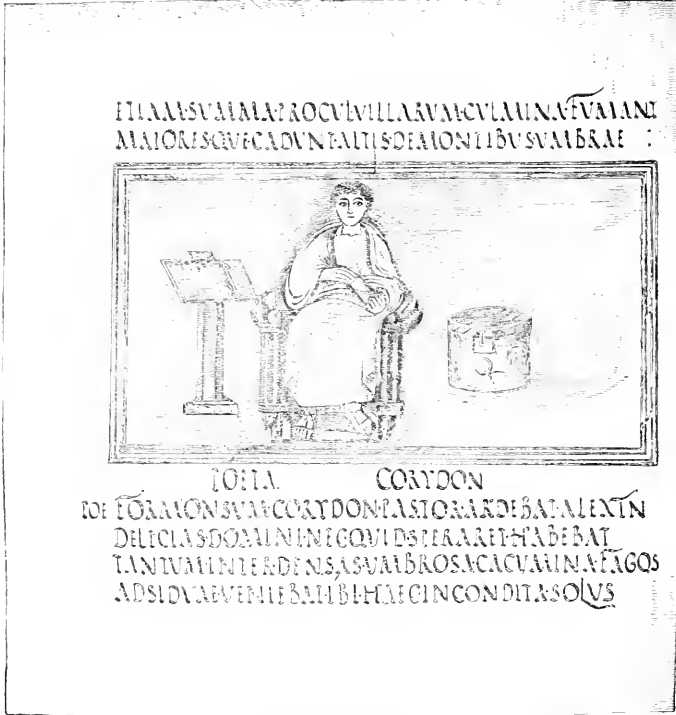 ETIAM·SVMMA·PROCVL·VILLARVM·CVLMINA·FVMANT
MAIORESQVE·CADVNT·ALTIS·DE·MONTIBVS·VMBRAE :
POETA CORYDON
POE FORMONSVM·CORYDON·PASTOR·ARDEBAT·ALEXIN
DELICIAS·DOMINI·NEC·QVID·SPERARET·HABEBAT
TANTVM·INTER·DENSAS·VMBROSA·CACVMINA·FAGOS
ADSIDVAE·VENIEBAT·IBI·HAEC·INCONDITA·SOLVS